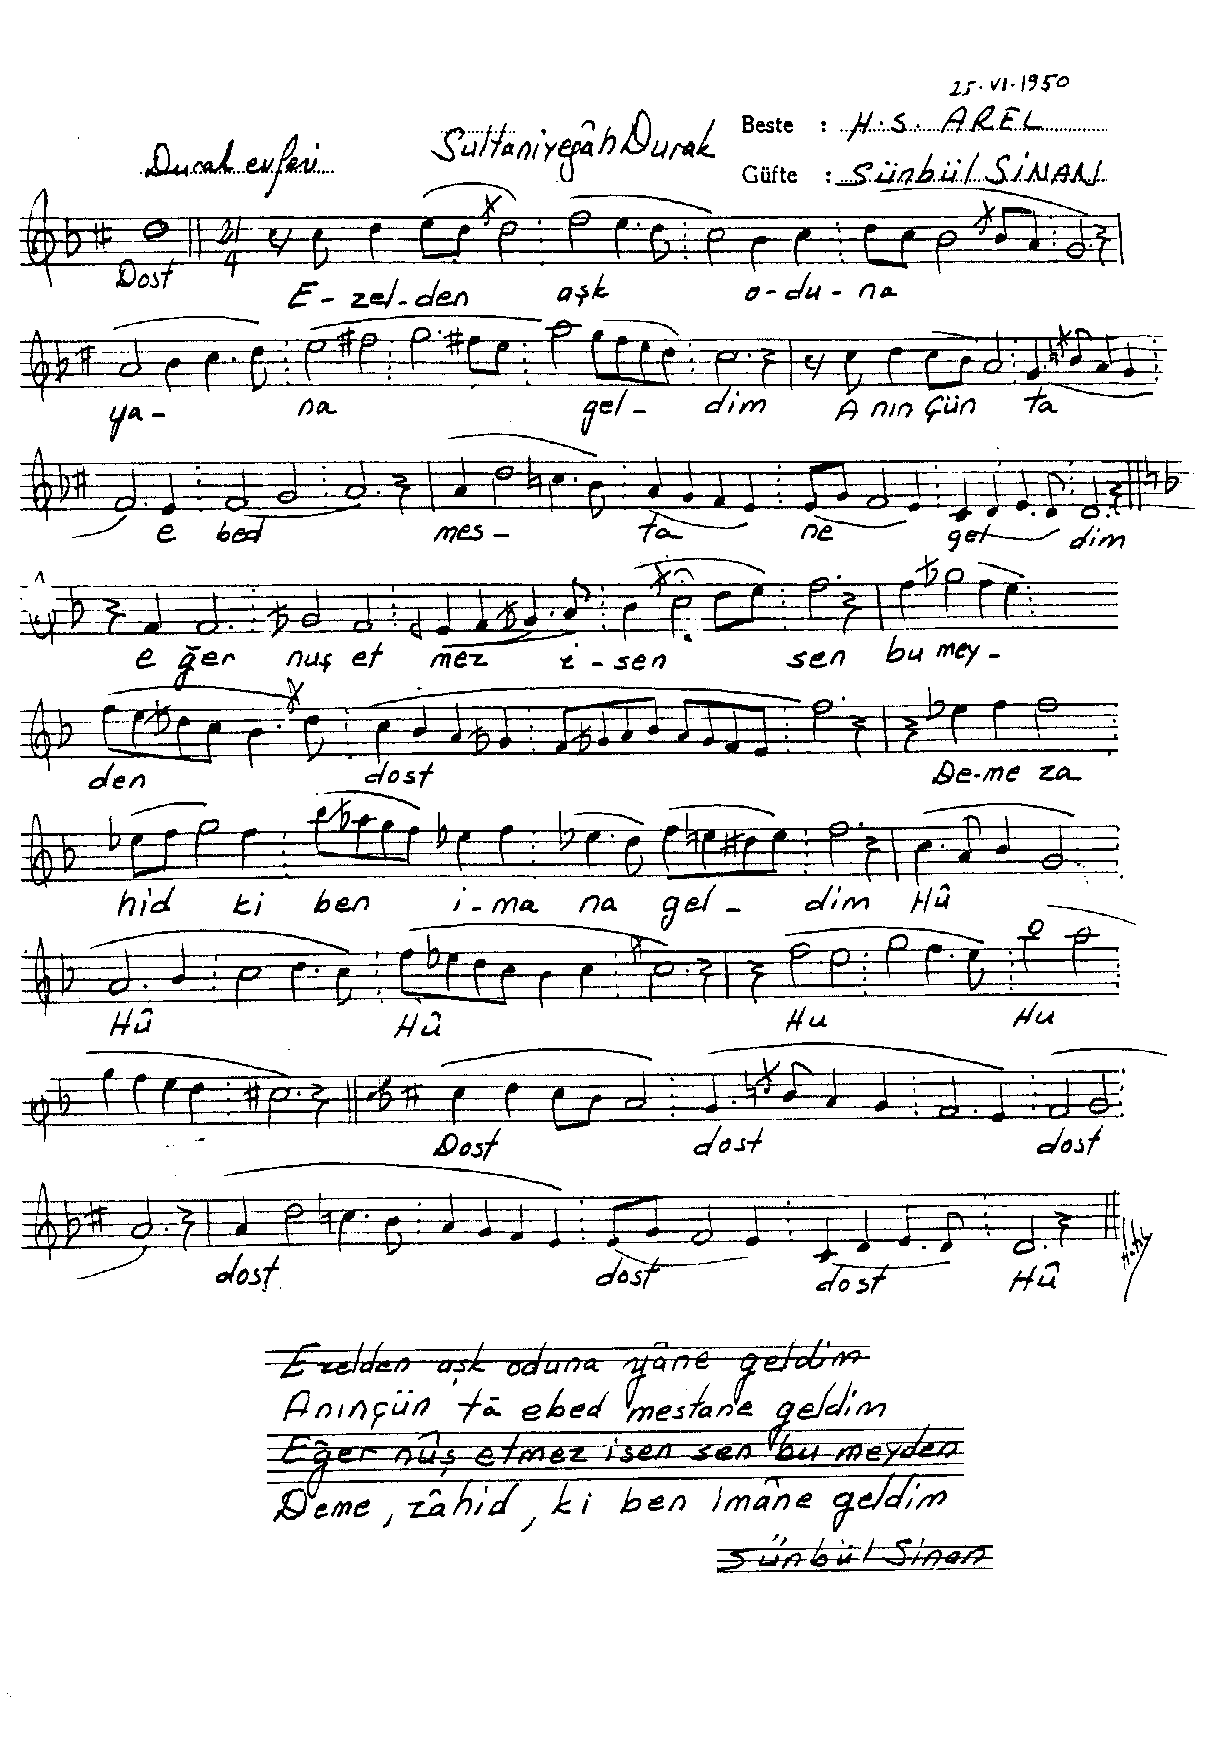 25.VI.1950
Beste : H.S. AREL
Durak evferi Sultaniyegâh Durak
Güfte : Sünbül SİNAN
21
4
Dost E-zel-den aşk o-du-na
ya- na gel- dim Anın çün ta
e bed mes- ta ne gel dim
e ğer nuş et mez i-sen sen bu mey-
den dost De-me za
hid ki ben i-ma na gel- dim Hû
Hû Hû Hu Hu
Dost dost dost
dost dost dost Hû
Ezelden aşk oduna yâne geldim
Anınçün tâ ebed mestane geldim
Eğer nûş etmez isen sen bu meyden
Deme, zâhid, ki ben imâne geldim
Sünbül Sinan